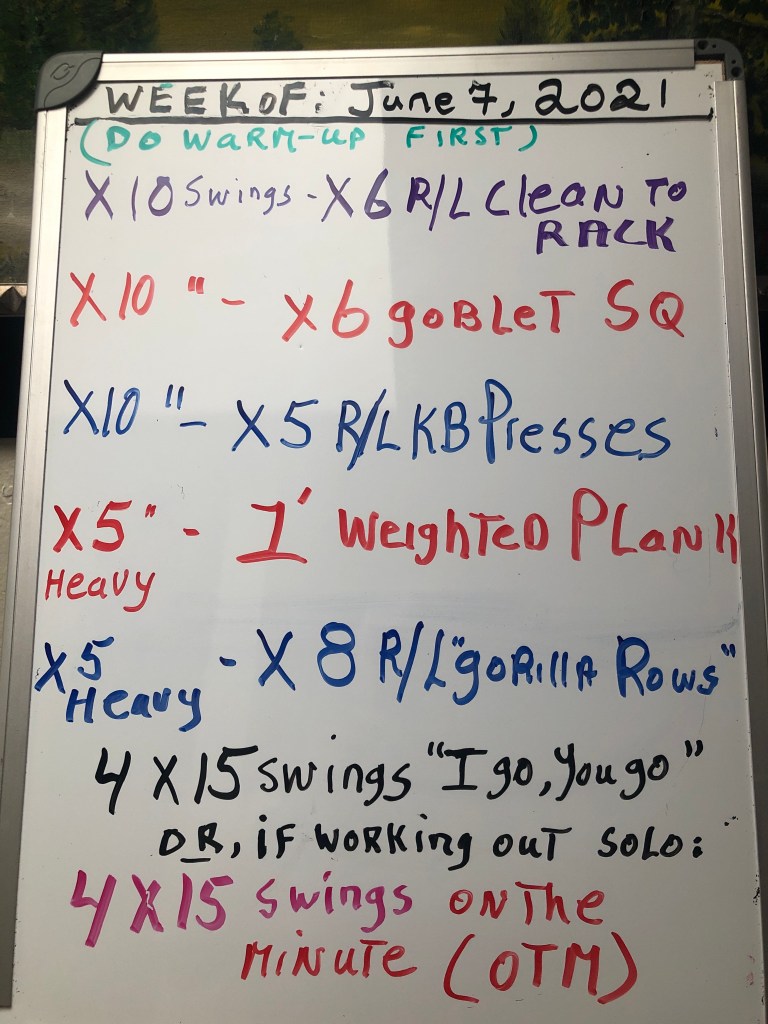 WEEK OF: June 7, 2021
(DO WARM-UP FIRST)
X10 Swings - X6 R/L Clean TO
RACK
X10 " - X6 goBLeT SQ
X10 " - X5 R/L KB Presses
X5 " - 1' Weighted PLank
Heavy
X5 - X8 R/L "goRillA Rows"
Heavy
4 X15 swings "I go, You go"
OR, iF woRKing ouT SoLo:
4X15 swings ON The
MiNUTe (OTM)